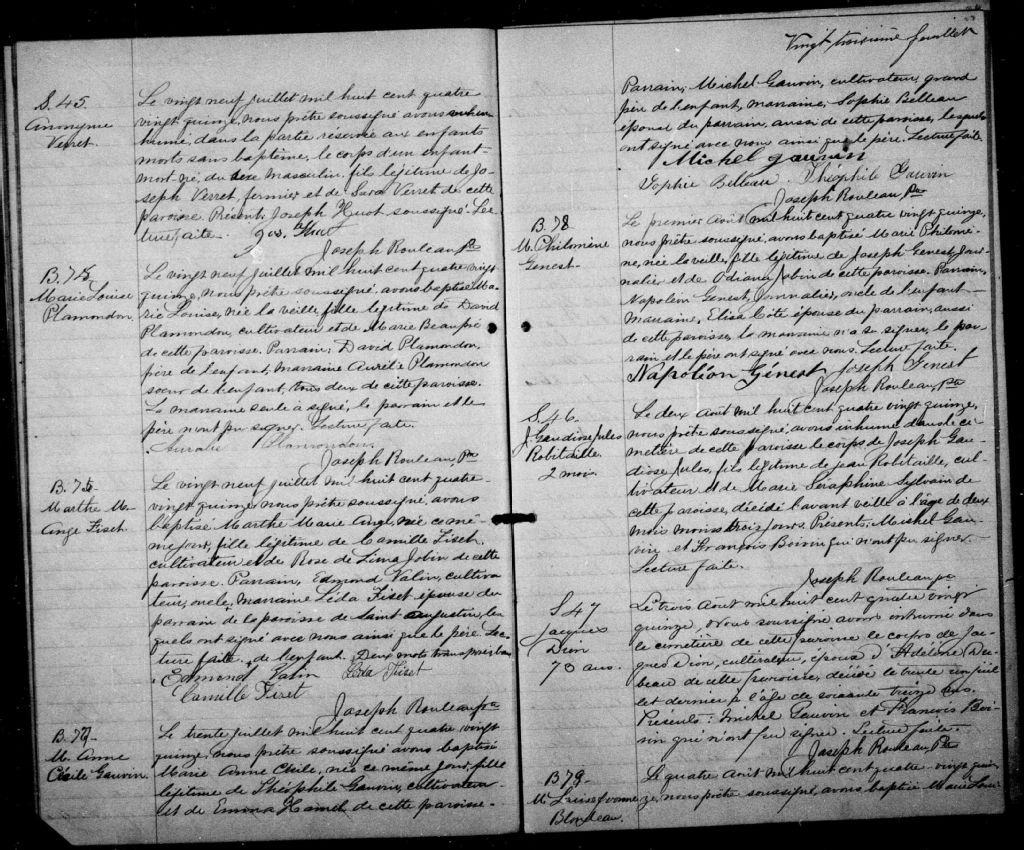 S. 45
Anonyme
Verret.
Le vingt neuf juillet mil huit cent quatre
vingt quinze, nous prêtre soussigné avons
humé, dans la partie réservée aux enfants
morts sans baptême, le corps d'un enfant
mort-né, du sexe masculin, fils légitime de Jo-
seph Verret, fermier et de Sara Verret de cette
paroisse. Présent, Joseph Huot soussigné. Lec-
ture faite. Jos. Huot
Joseph Rouleau, Ptre
B. 75
Marie Louise
Plamondon.
Le vingt neuf juillet mil huit cent quatre vingt
quinze, nous prêtre soussigné, avons baptisé Ma-
rie Louise, née la veille, fille légitime de David
Plamondon, cultivateur et de Marie Beaupré
de cette paroisse. Parrain, David Plamondon,
père de l'enfant, marraine Aurélie Plamondon
soeur de l'enfant, tous deux de cette paroisse.
La marraine seule a signé, le parrain et le
père n'ont pu signer. Lecture faite.
Aurelie Plamondon
Joseph Rouleau, Ptre
B. 76
Marthe M.
Ange Fiset
Le vingt neuf juillet mil huit cent quatre
vingt quinze, nous prêtre soussigné, avons
baptisé Marthe Marie Ange, née ce mê-
me jour, fille légitime de Camille Fiset,
cultivateur et de Rose de Lima Jobin de cette
paroisse. Parrain, Edmond Valin, cultiva-
teur, oncle, marraine Léda Fiset épouse du
parrain de la paroisse de Saint Augustin, les
quels ont signé avec nous ainsi que le père. Lec-
ture faite. de l'enfant. Deux mots
Edmond Valin Léda Fiset
Camille Fiset
Joseph Rouleau, ptre
B. 77
M. Anne
Cécile Gauvin.
Le trente juillet mil huit cent quatre vingt
quinze, nous prêtre soussigné avons baptisé
Marie Anne Cécile, née ce même jour, fille
légitime de Théophile Gauvin, cultivateur
et de Emma Hamel de cette paroisse.
Vingt troisième feuillet
Parrain, Michel Gauvin, cultivateur, grand
père de l'enfant, marraine, Sophie Belleau
épouse du parrain, aussi de cette paroisse, lesquels
ont signé avec nous ainsi que le père. Lecture faite.
Michel Gauvin
Sophie Belleau. Théophile Gauvin
Joseph Rouleau Ptre
B. 78
M. Philomène
Genest.
Le premier Août mil huit cent quatre vingt quinze,
nous prêtre soussigné, avons baptisé Marie Philomè-
ne, née la veille, fille légitime de Joseph Genest, jour-
nalier et de Odiana Jobin de cette paroisse. Parrain,
Napoléon Genest, journalier, oncle de l'enfant
marraine, Elisa Côté épouse du parrain, aussi
de cette paroisse, la marraine n'a su signer, le par-
rain et le père ont signé avec nous. Lecture faite.
Napoléon Génest Joseph Genest
Joseph Rouleau, Ptre
S. 46
J. Gaudiose Jules
Robitaille
2 mois
Le deux Août mil huit cent quatre vingt quinze,
nous prêtre soussigné, avons inhumé dans le ci-
metière de cette paroisse le corps de Joseph Gau-
diose Jules, fils légitime de Jean Robitaille, cul-
tivateur et de Marie Séraphine Sylvain de
cette paroisse, décédé l'avant veille à l'âge de deux
mois moins trois jours. Présents, Michel Gau-
vin et François Boivin qui n'ont pu signer.
Lecture faite.
Joseph Rouleau, ptre
S 47
Jacques
Dion
73 ans.
Le trois Août mil huit cent quatre vingt
quinze, nous soussigné avons inhumé dans
le cimetière de cette paroisse le corps de Jac-
ques Dion, cultivateur, époux d'Adeline
beau de cette paroisse, décédé le trente
let dernier à l'âge de soixante treize ans.
Présents: Michel Gauvin et François Boi-
vin qui n'ont pu signer. Lecture faite.
Joseph Rouleau Ptre
B 79
M. Louise Yvonne
Blondeau.
Le quatre Août mil huit cent quatre vingt quin-
ze, nous prêtre soussigné, avons baptisé Marie Loui-